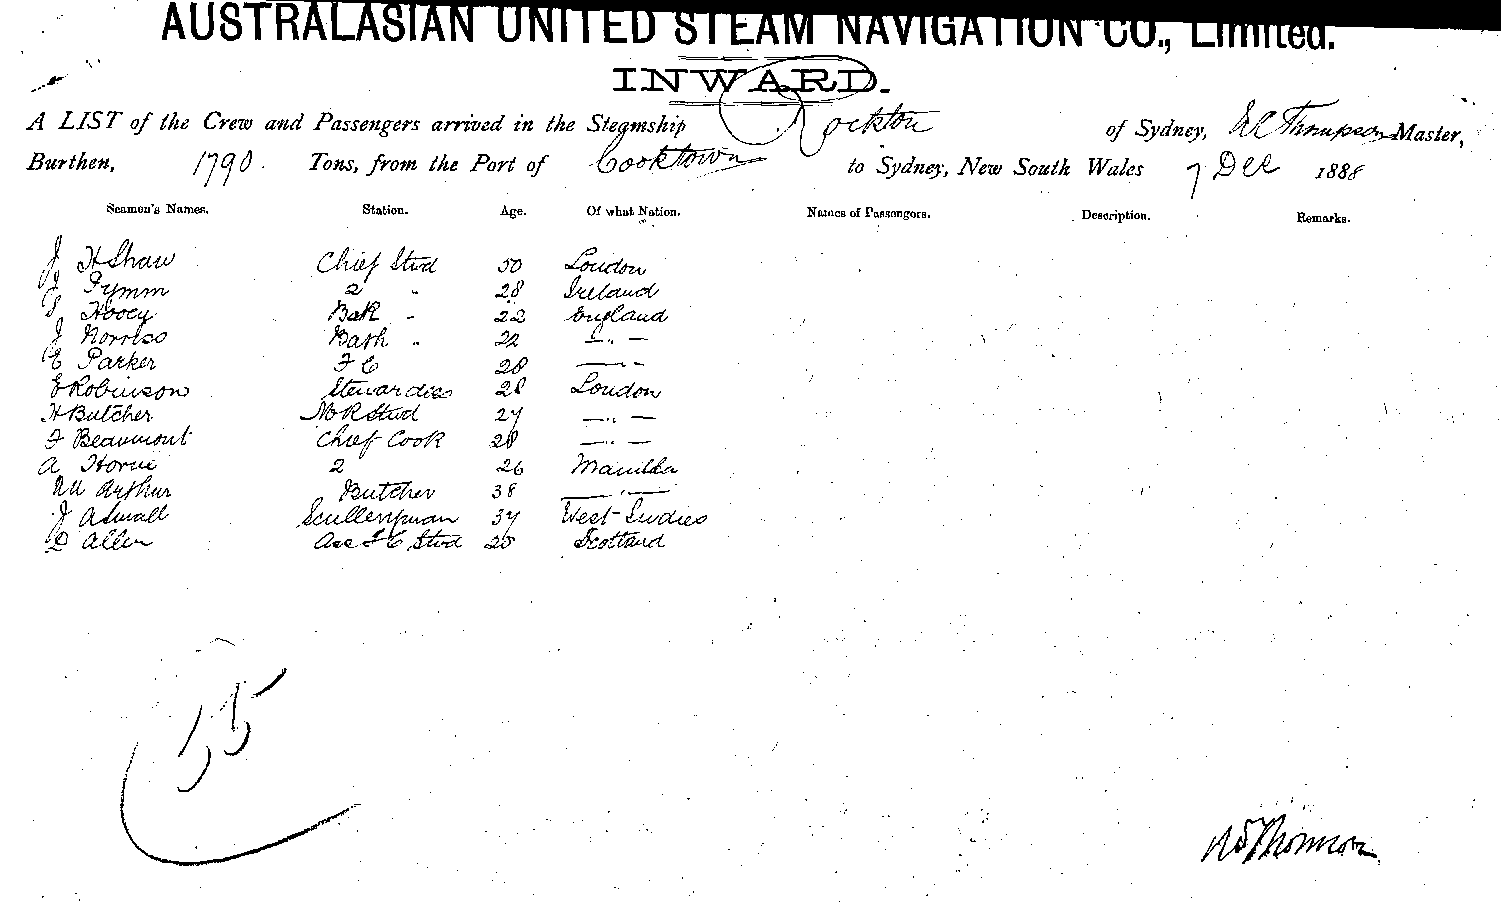 AUSTRALASIAN UNITED STEAM NAVIGATION CO., Limited.
INWARD.
A LIST of the Crew and Passengers arrived in the Steamship Rockton of Sydney, Thompson Master,
Burthen, 1790 Tons, from the Port of Cooktown to Sydney, New South Wales 7 Dec 1888
Seamen's Names. Station. Age. Of what Nation. Names of Passengers. Description. Remarks.
J H Shaw Chief Stwd 50 London
J Pymm 2 " 28 Ireland
Hooey Bak " 22 England
J Norriss Bath " 22 — " —
E Parker F C 28 — " —
E Robinson Stewardess 28 London
H Butcher Stwd 27 — " —
F Beaumont Chief Cook 28 — " —
A Horne 2 26 Manilla
Arthur Butcher 38 — " —
J Aswall Sculleryman 37 West Indies
D Allen F C Stwd 25 Scotland
15
Thomson